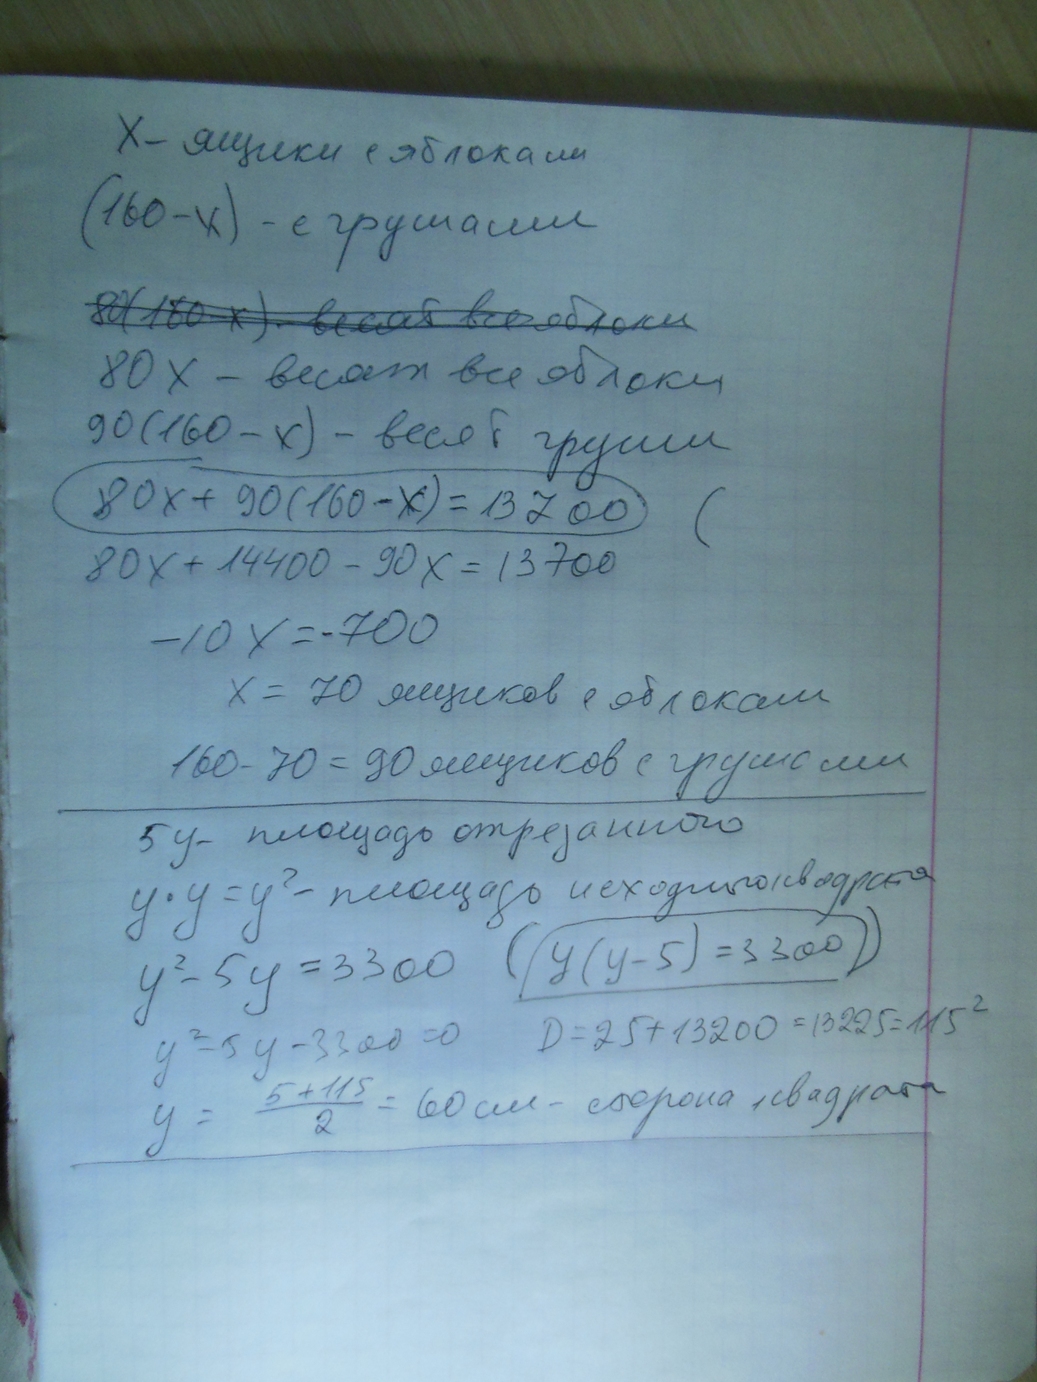 x – ящики с яблоками
(160 – x) – с грушами
80(160 – x) – весят все яблоки
80x – весят все яблоки
90(160 – x) – весят груши
80x + 90(160 – x) = 13700 (
80x + 14400 – 90x = 13700
–10x = –700
x = 70 ящиков с яблоками
160 – 70 = 90 ящиков с грушами
5y – площадь отрезанного
y · y = y² – площадь исходного квадрата
y² – 5y = 3300 (y(y – 5) = 3300)
y² – 5y – 3300 = 0 D = 25 + 13200 = 13225 = 115²
y = (5 + 115)/2 = 60 см – сторона квадрата